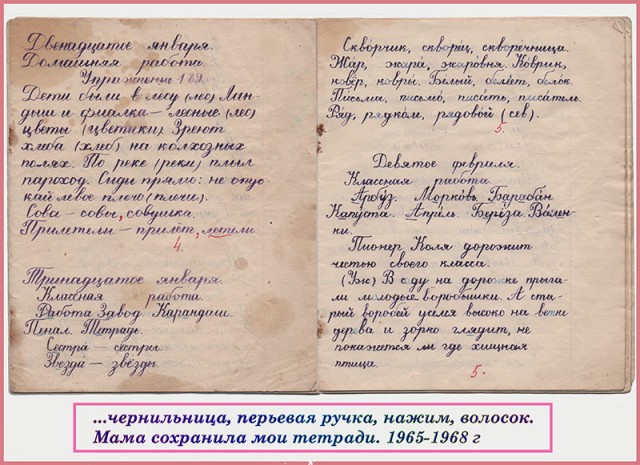 Двенадцатое января.
Домашняя работа.
Упражнение 189.
Дети были в лесу (лес) Лан-
дыши и фиалка – лесные (лес)
цветы (цветики). Зреют
хлеба (хлеб) на колхозных
полях. По реке (реки) плыл
пароход. Сиди прямо: не опус
кай левое плечо (плечи).
Сова – совы, совушка.
Прилетели – прилёт, летели
4.
Тринадцатое января.
Классная работа.
Работа Завод. Карандаш.
Пенал. Тетрадь.
Сестра – сёстры.
Звезда – звёзды.
Скворчик, скворец, скворечница.
Жар, жара, жаровня. Коврик,
ковёр, ковры. Белый, белет, белок.
Письма, письмо, писать, писатель.
Ряд, рядком, рядовой (сев).
5.
Девятое февраля.
Классная работа.
Арбуз. Морковь Барабан
Капуста. Апрель. Берёза Вален-
ки.
Пионер Коля дорожит
честью своего класса.
В саду на дорожке прыга-
ли молодые воробышки. А ста-
рый воробей уселся высоко на ветки
дерева и зорко глядит, не
покажется ли где хищная
птица.
5.
...чернильница, перьевая ручка, нажим, волосок.
Мама сохранила мои тетради. 1965-1968 г